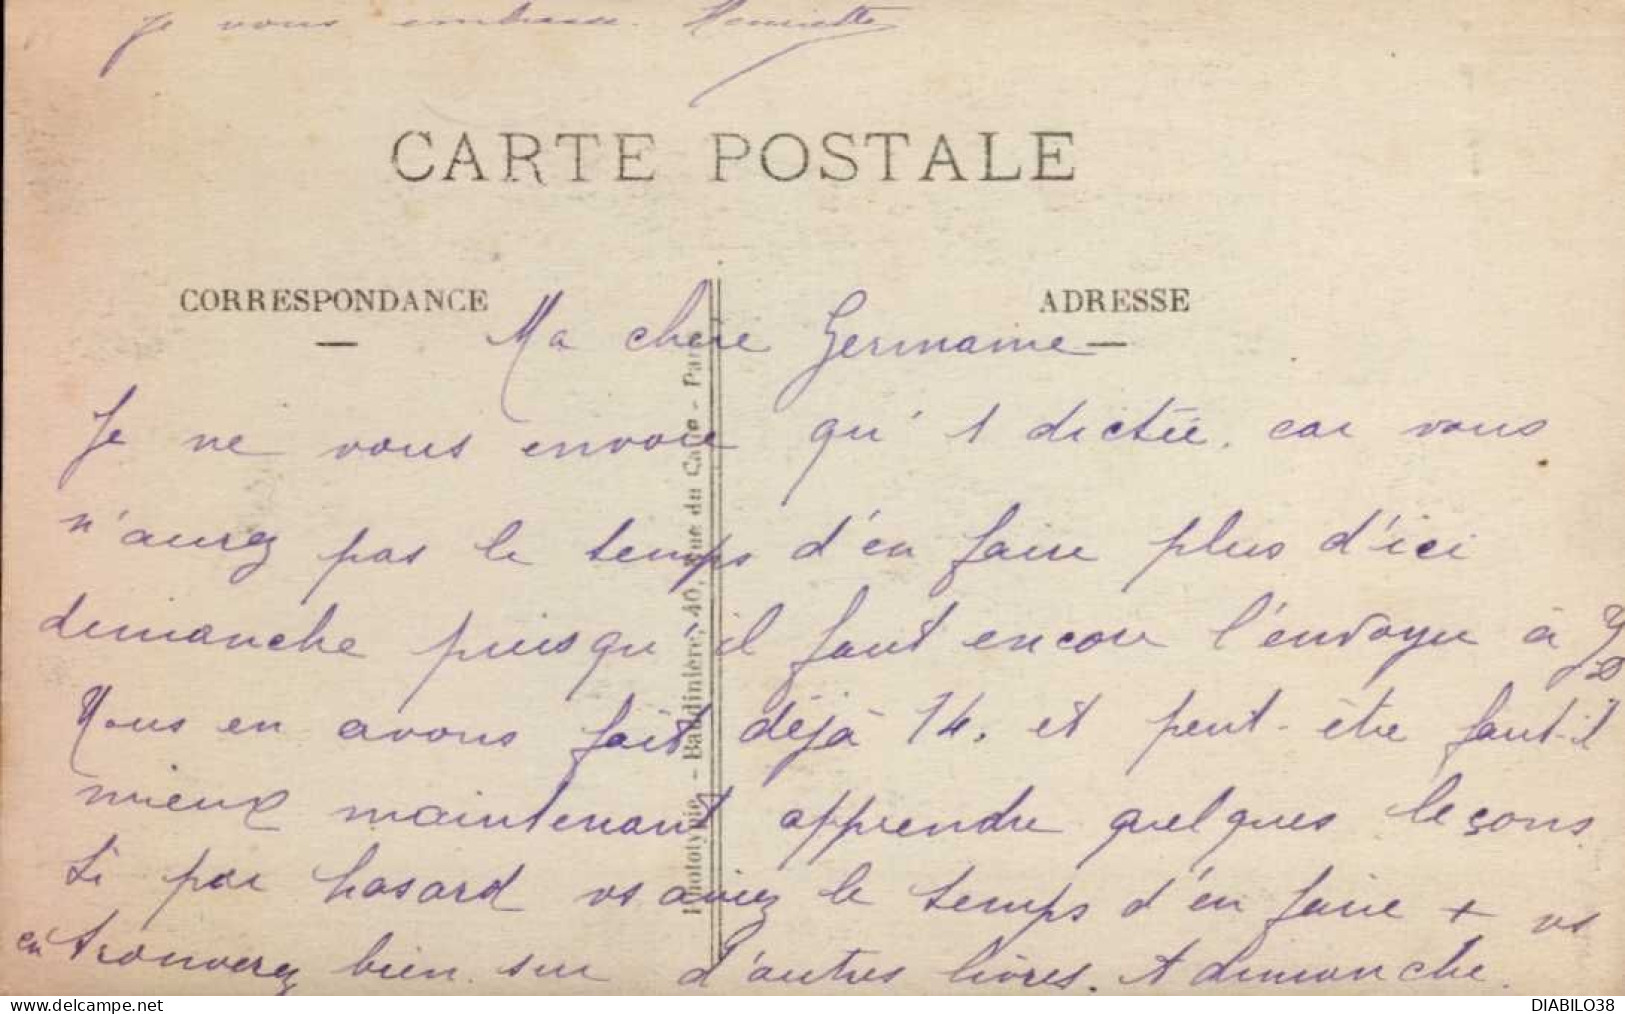 Je vous embrasse. Henriette
CARTE POSTALE
CORRESPONDANCE
ADRESSE
Ma chère Germaine
Je ne vous envoie qu' 1 dictée, car vous
n'aurez pas le temps d'en faire plus d'ici
dimanche puisqu'il faut encore l'envoyer à
Nous en avons fait déjà 14. et peut-être faut-il
mieux maintenant apprendre quelques leçons
Si par hasard vs aviez le temps d'en faire + vs
en trouverez bien sur d'autres livres. A dimanche.
Phototypie - Baudinière, 40, Rue du Caire - Paris
DIABILO38